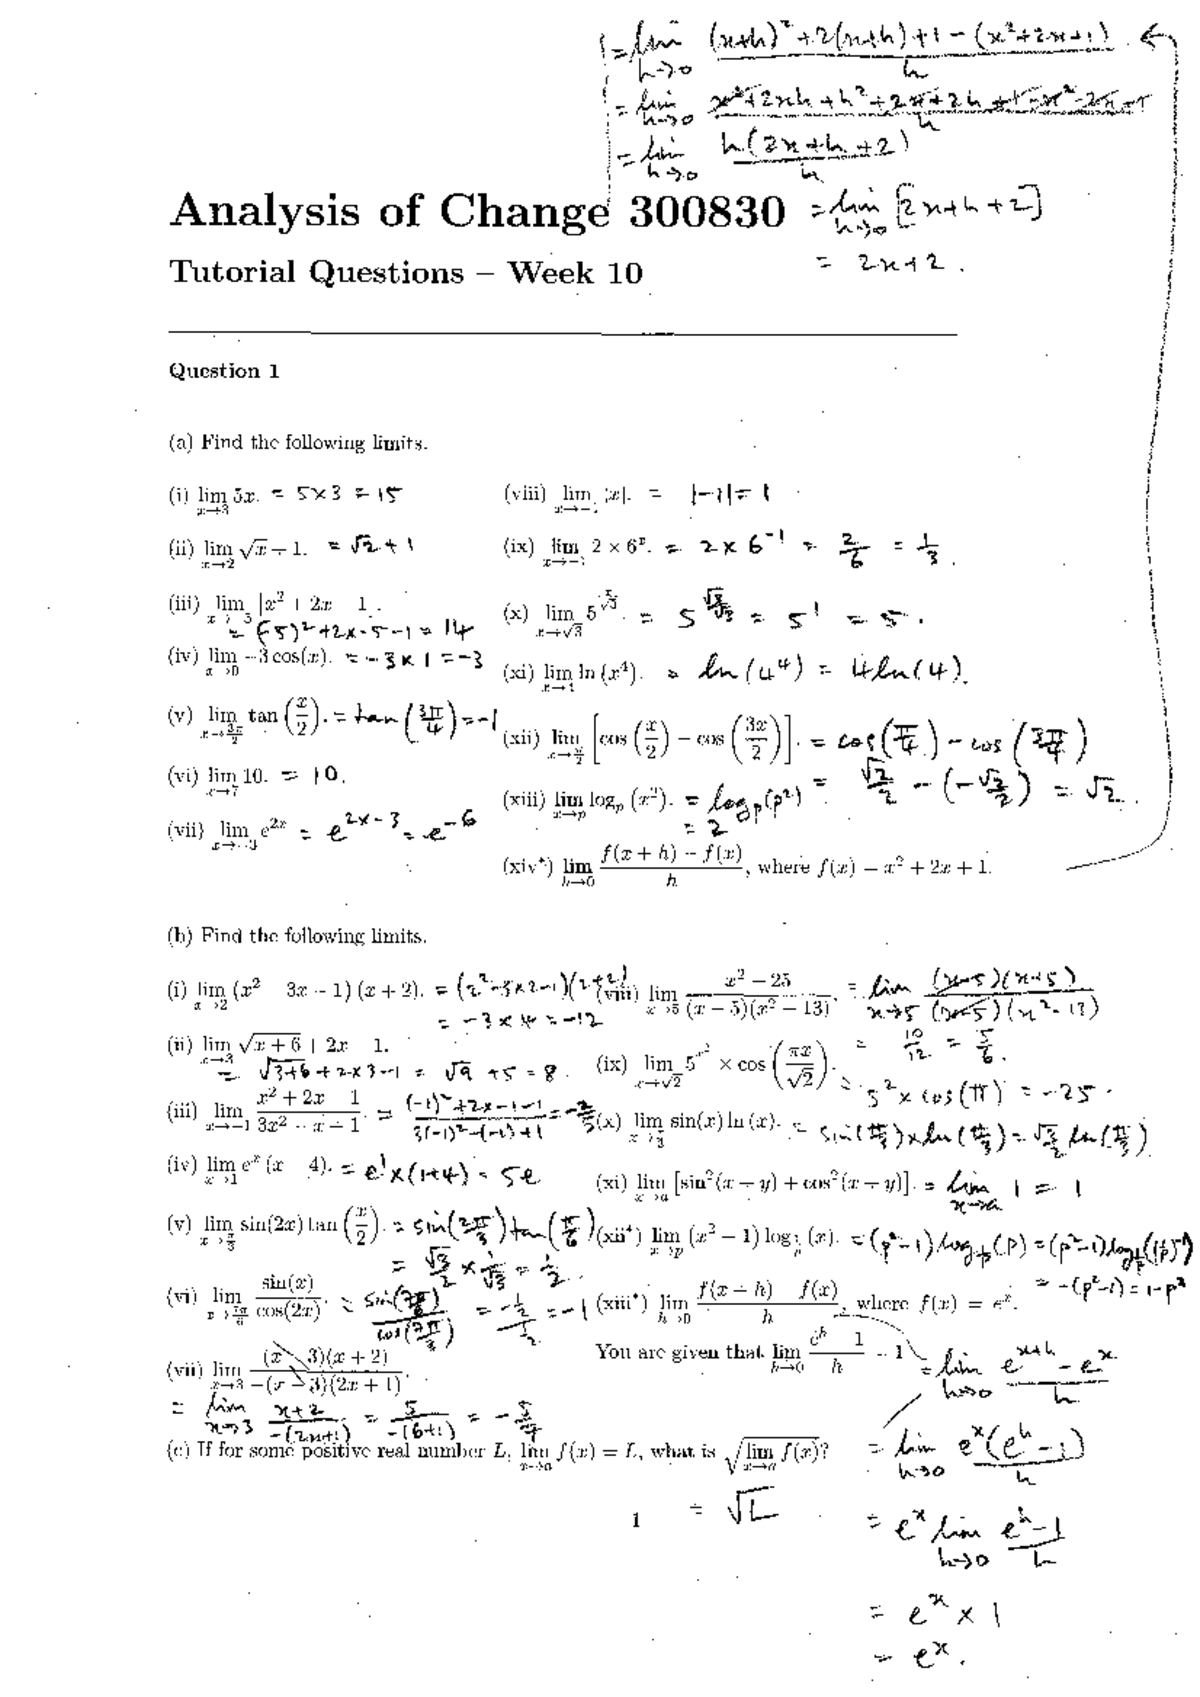 = lim h→0 ((x+h)² + 2(x+h) + 1 − (x²+2x+1)) / h
= lim h→0 (x² + 2xh + h² + 2x + 2h + 1 − x² − 2x − 1) / h
= lim h→0 h(2x+h+2) / h
Analysis of Change 300830 = lim h→0 [2x+h+2]
Tutorial Questions – Week 10 = 2x+2.
Question 1
(a) Find the following limits.
(i) lim x→3 5x. = 5×3 = 15
(ii) lim x→2 √x + 1. = √2 + 1
(iii) lim [x² + 2x 1].
= (-5)² + 2×-5 -1 = 14
(iv) lim x→0 −3 cos(x). = −3×1 = −3
(v) lim x→3π/2 tan(x/2). = tan(3π/4) = −1
(vi) lim x→7 10. = 10.
(vii) lim x→-3 e^2x = e^(2×-3) = e^-6
(viii) lim x→-1 |x|. = |-1| = 1
(ix) lim x→-1 2 × 6^x. = 2×6^-1 = 2/6 = 1/3.
(x) lim x→√3 5^(x/√3). = 5^(√3/√3) = 5^1 = 5.
(xi) lim x→4 ln(x⁴). = ln(4⁴) = 4ln(4).
(xii) lim x→π/2 [cos(x/2) − cos(3x/2)]. = cos(π/4) − cos(3π/4)
= √2/2 − (−√2/2) = √2.
(xiii) lim x→p log_p(x²). = log_p(p²)
= 2
(xiv*) lim h→0 (f(x + h) − f(x)) / h, where f(x) = x² + 2x + 1.
(b) Find the following limits.
(i) lim x→2 (x² 3x − 1)(x + 2). = (2²−3×2−1)(2+2)
= −3×4 = −12
(ii) lim x→3 √(x + 6) + 2x 1.
= √(3+6) + 2×3−1 = √9 + 5 = 8.
(iii) lim x→−1 (x² + 2x 1) / (3x² − x + 1). = ((-1)²+2×-1-1) / (3(-1)²-(-1)+1) = -2/5
(iv) lim x→1 e^x (x 4). = e^1×(1+4) = 5e
(v) lim x→π/3 sin(2x) tan(x/2). = sin(2π/3) tan(π/6)
= √3/2 × 1/√3 = 1/2.
(vi) lim x→7π/6 sin(x) / cos(2x). = sin(7π/6) / cos(7π/3) = (-1/2) / (1/2) = -1
(vii) lim x→3 (x 3)(x + 2) / −(x − 3)(2x + 1).
= lim x→3 (x+2) / −(2x+1) = 5 / −(6+1) = −5/7
(viii) lim x→5 (x² − 25) / ((x − 5)(x² − 13)). = lim x→5 (x−5)(x+5) / (x−5)(x²−13)
= 10/12 = 5/6.
(ix) lim x→√2 5^(x²) × cos(πx/√2).
= 5² × cos(π) = −25.
(x) lim x→π/3 sin(x) ln(x). = sin(π/3)×ln(π/3) = √3/2 ln(π/3).
(xi) lim x→a [sin²(x − y) + cos²(x − y)]. = lim x→a 1 = 1
(xii*) lim x→p (x² − 1) log_1/p (x). = (p²−1) log_1/p (p) = (p²−1) log_1/p ((1/p)^-1)
= −(p²−1) = 1−p²
(xiii*) lim h→0 (f(x + h) f(x)) / h, where f(x) = e^x.
You are given that lim h→0 (e^h 1) / h = 1
= lim h→0 (e^(x+h) − e^x) / h
= lim h→0 e^x(e^h − 1) / h
= e^x lim h→0 (e^h − 1) / h
= e^x × 1
= e^x.
(c) If for some positive real number L, lim x→a f(x) = L, what is √(lim x→a f(x))?
= √L
1